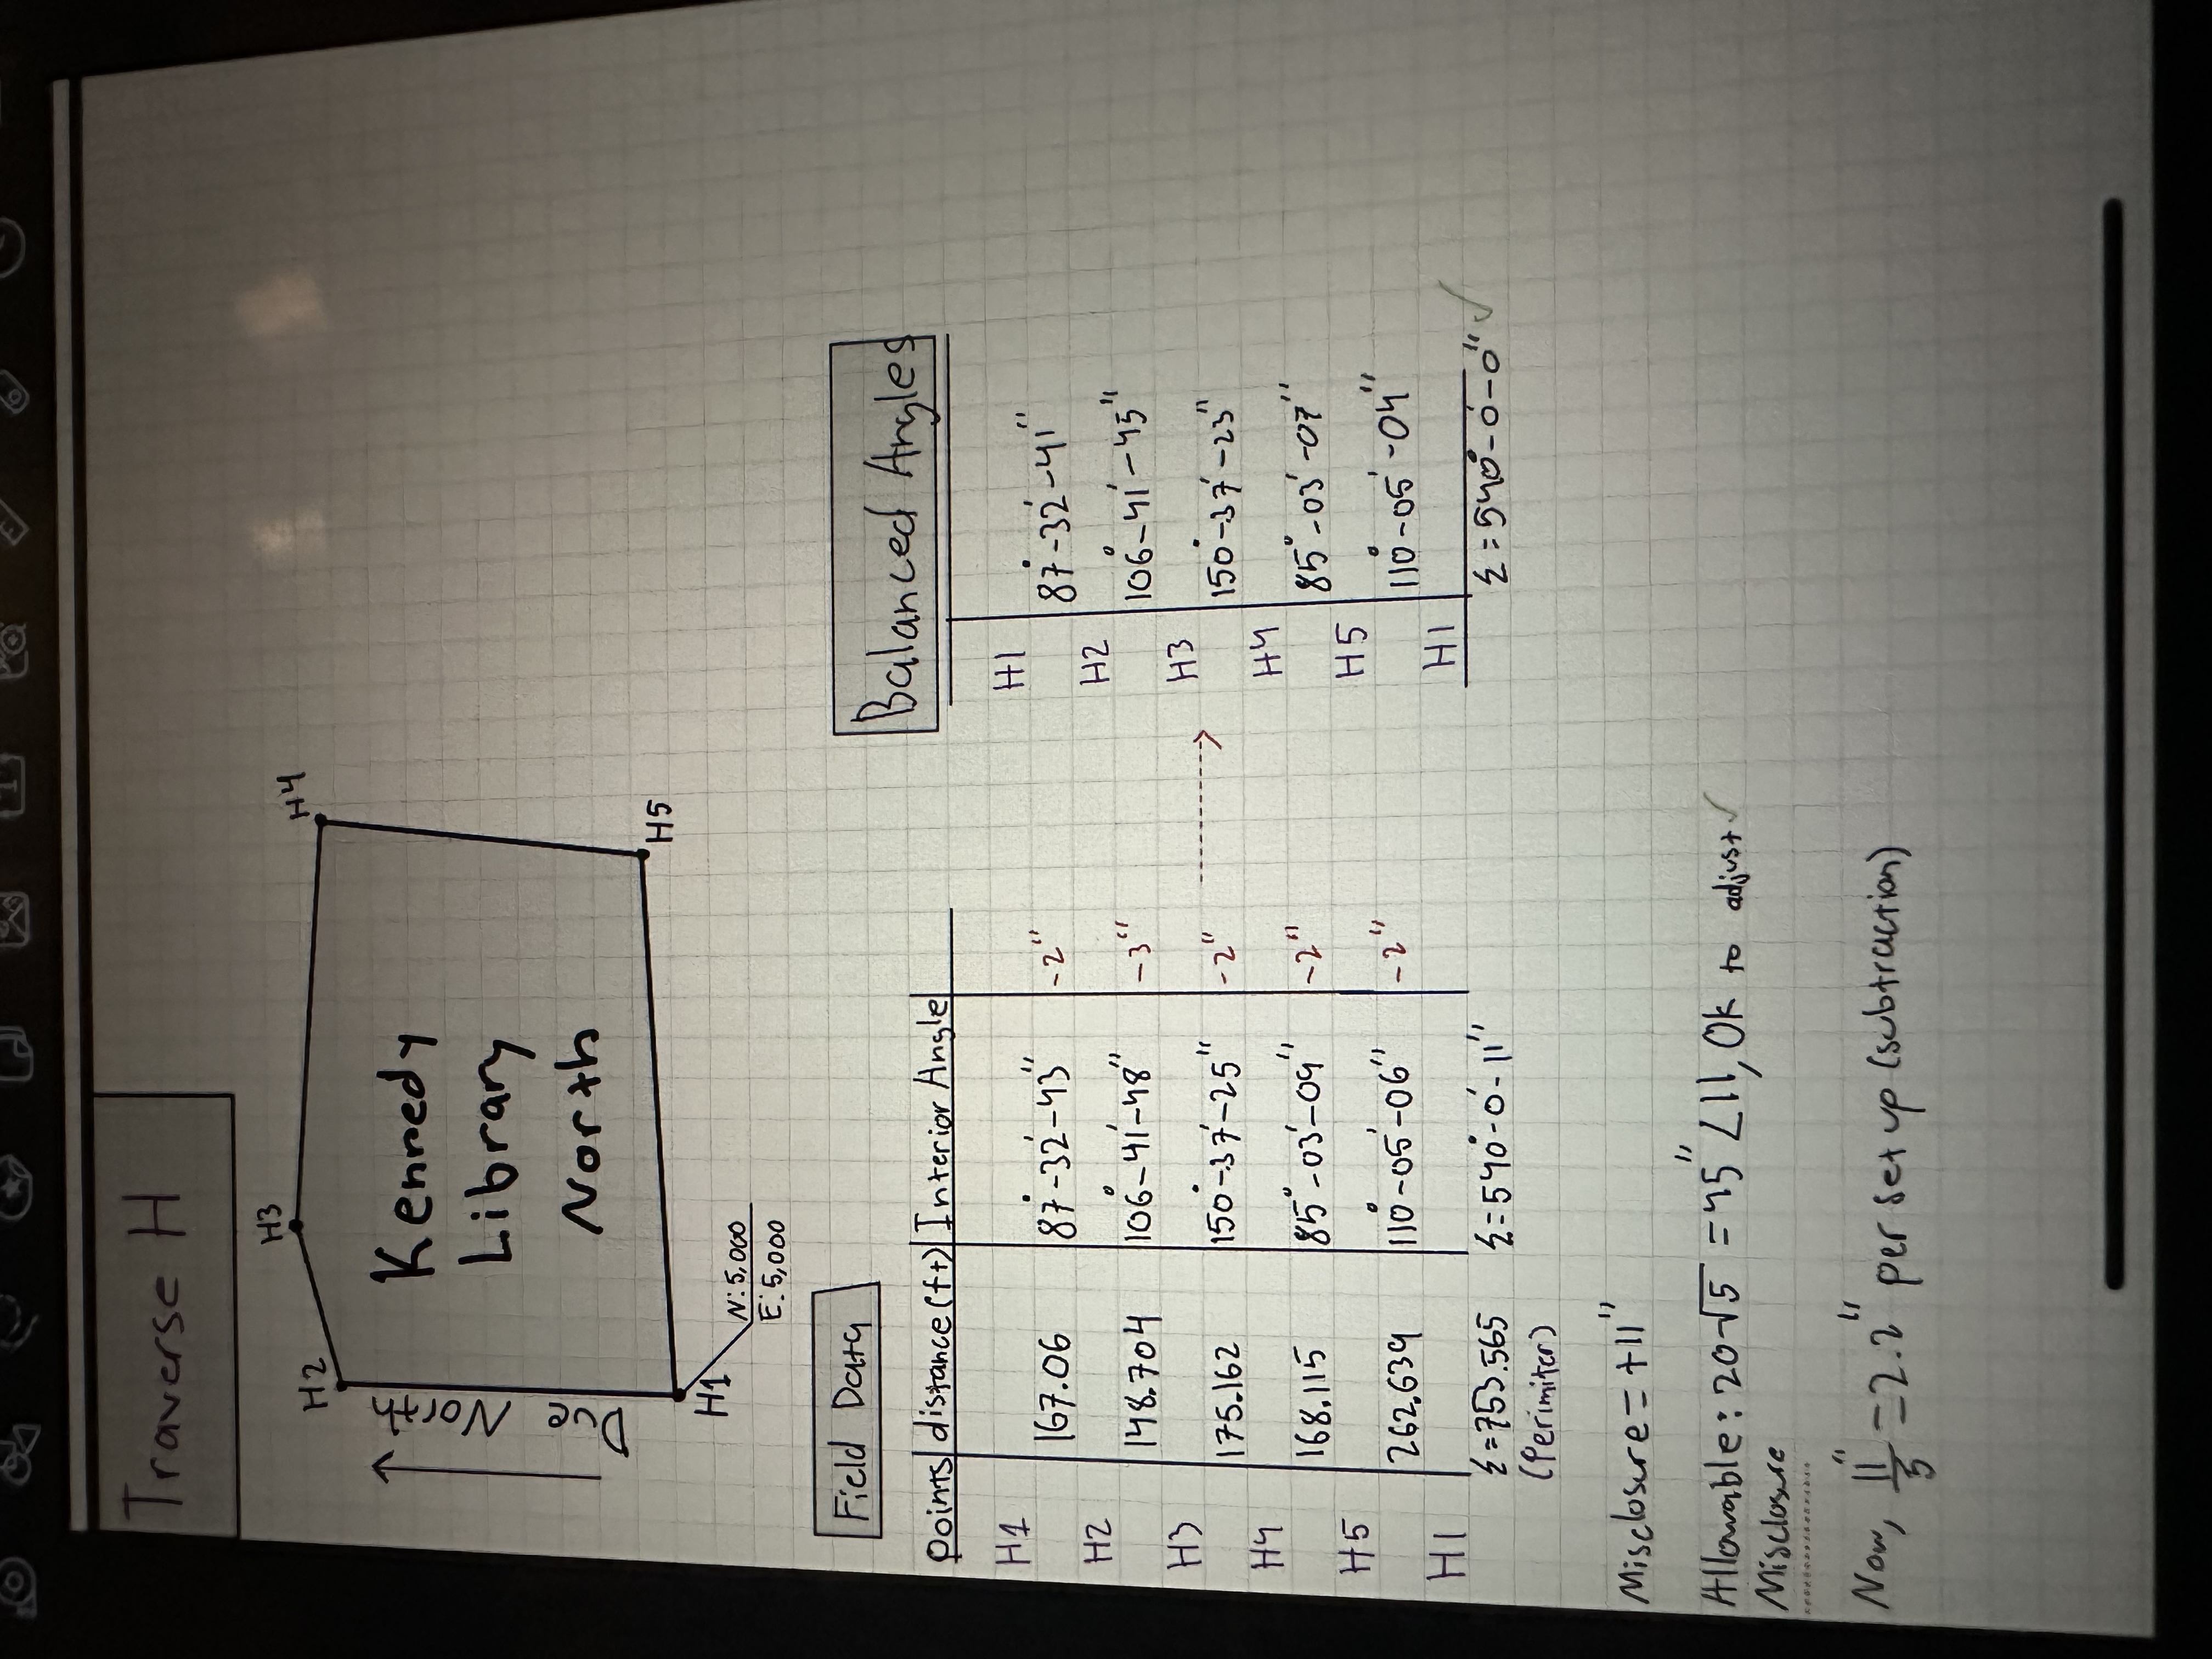 Traverse H
H4
H3
H2
Due North
Kennedy
Library
North
H5
H1
N: 5,000
E: 5,000
Field Data
Balanced Angles
points distance(ft) Interior Angle
H1 H1
167.06 87°-32'-43" -2" 87°-32'-41"
H2 H2
148.704 106°-41'-48" -3" 106°-41'-45"
H3 H3
175.162 150°-37'-25" -2" 150°-37'-23"
H4 H4
168.115 85°-03'-09" -2" 85°-03'-07"
H5 H5
262.639 110°-05'-06" -2" 110°-05'-04"
H1 H1
Σ=753.565 Σ=540°-0'-11" Σ=540°-0'-0" ✓
(Perimiter)
Misclosure = +11"
Allowable: 20√5 = 45" < 11, Ok to adjust ✓
Misclosure
Now, 11"/5 = 2.2" per set up (subtraction)